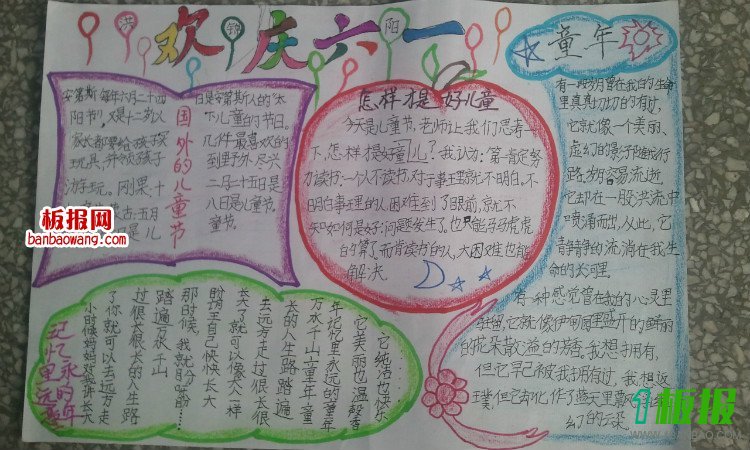 欢庆六一
阳
国外的儿童节
安第斯每年六月二十四
阳节",又是十二岁以
家长都要给孩子买
玩具,并领孩子
游玩。刚果,十
击,五月
日是安第斯人的"太
下儿童的节日。
几件最喜欢的
到野外尽兴
二月二十五日是
八日是儿童节。
童节。
板报网
banbaowang.com
怎样才是好儿童
今天是儿童节,老师让我们思考一
下,怎样才是好童儿?我认为:第一肯定努
力读书:一个人不读书,对于事理就不明白。不
明白事理的人困难到了眼前,就不
知如何是好;问题发生了。也只能马马虎虎
的算了。而肯读书的人,大困难也能
解决
童年
有一段岁月曾在我的生命
里真真切切的有过,
它就像一个美丽、
虚幻的影子随我行
路,岁月容易流逝
它却在一股洪流中
喷涌而出,从此,它
静静的流淌在我生
命的长河里。
有一种感觉曾在我的心灵里
驻留,它就像伊甸园里盛开的鲜丽
的花朵散溢的芳香。我想拥有,
但它早已被我拥有过,我想返
璞,但它却化作了蓝天里
幻的云朵。
记忆里永远的童年
小时候妈妈对我讲长大
了你就可以去远方走
过很长很长的人生路
踏遍万水千山
那时候,我就盼呀盼
盼望王自己快快长大
长大了就可以像大人一样
去远方走过很长很
长的人生路踏遍
万水千山童年童
年记忆里永远的童年
它美丽也温馨
它纯洁也快乐
1板报